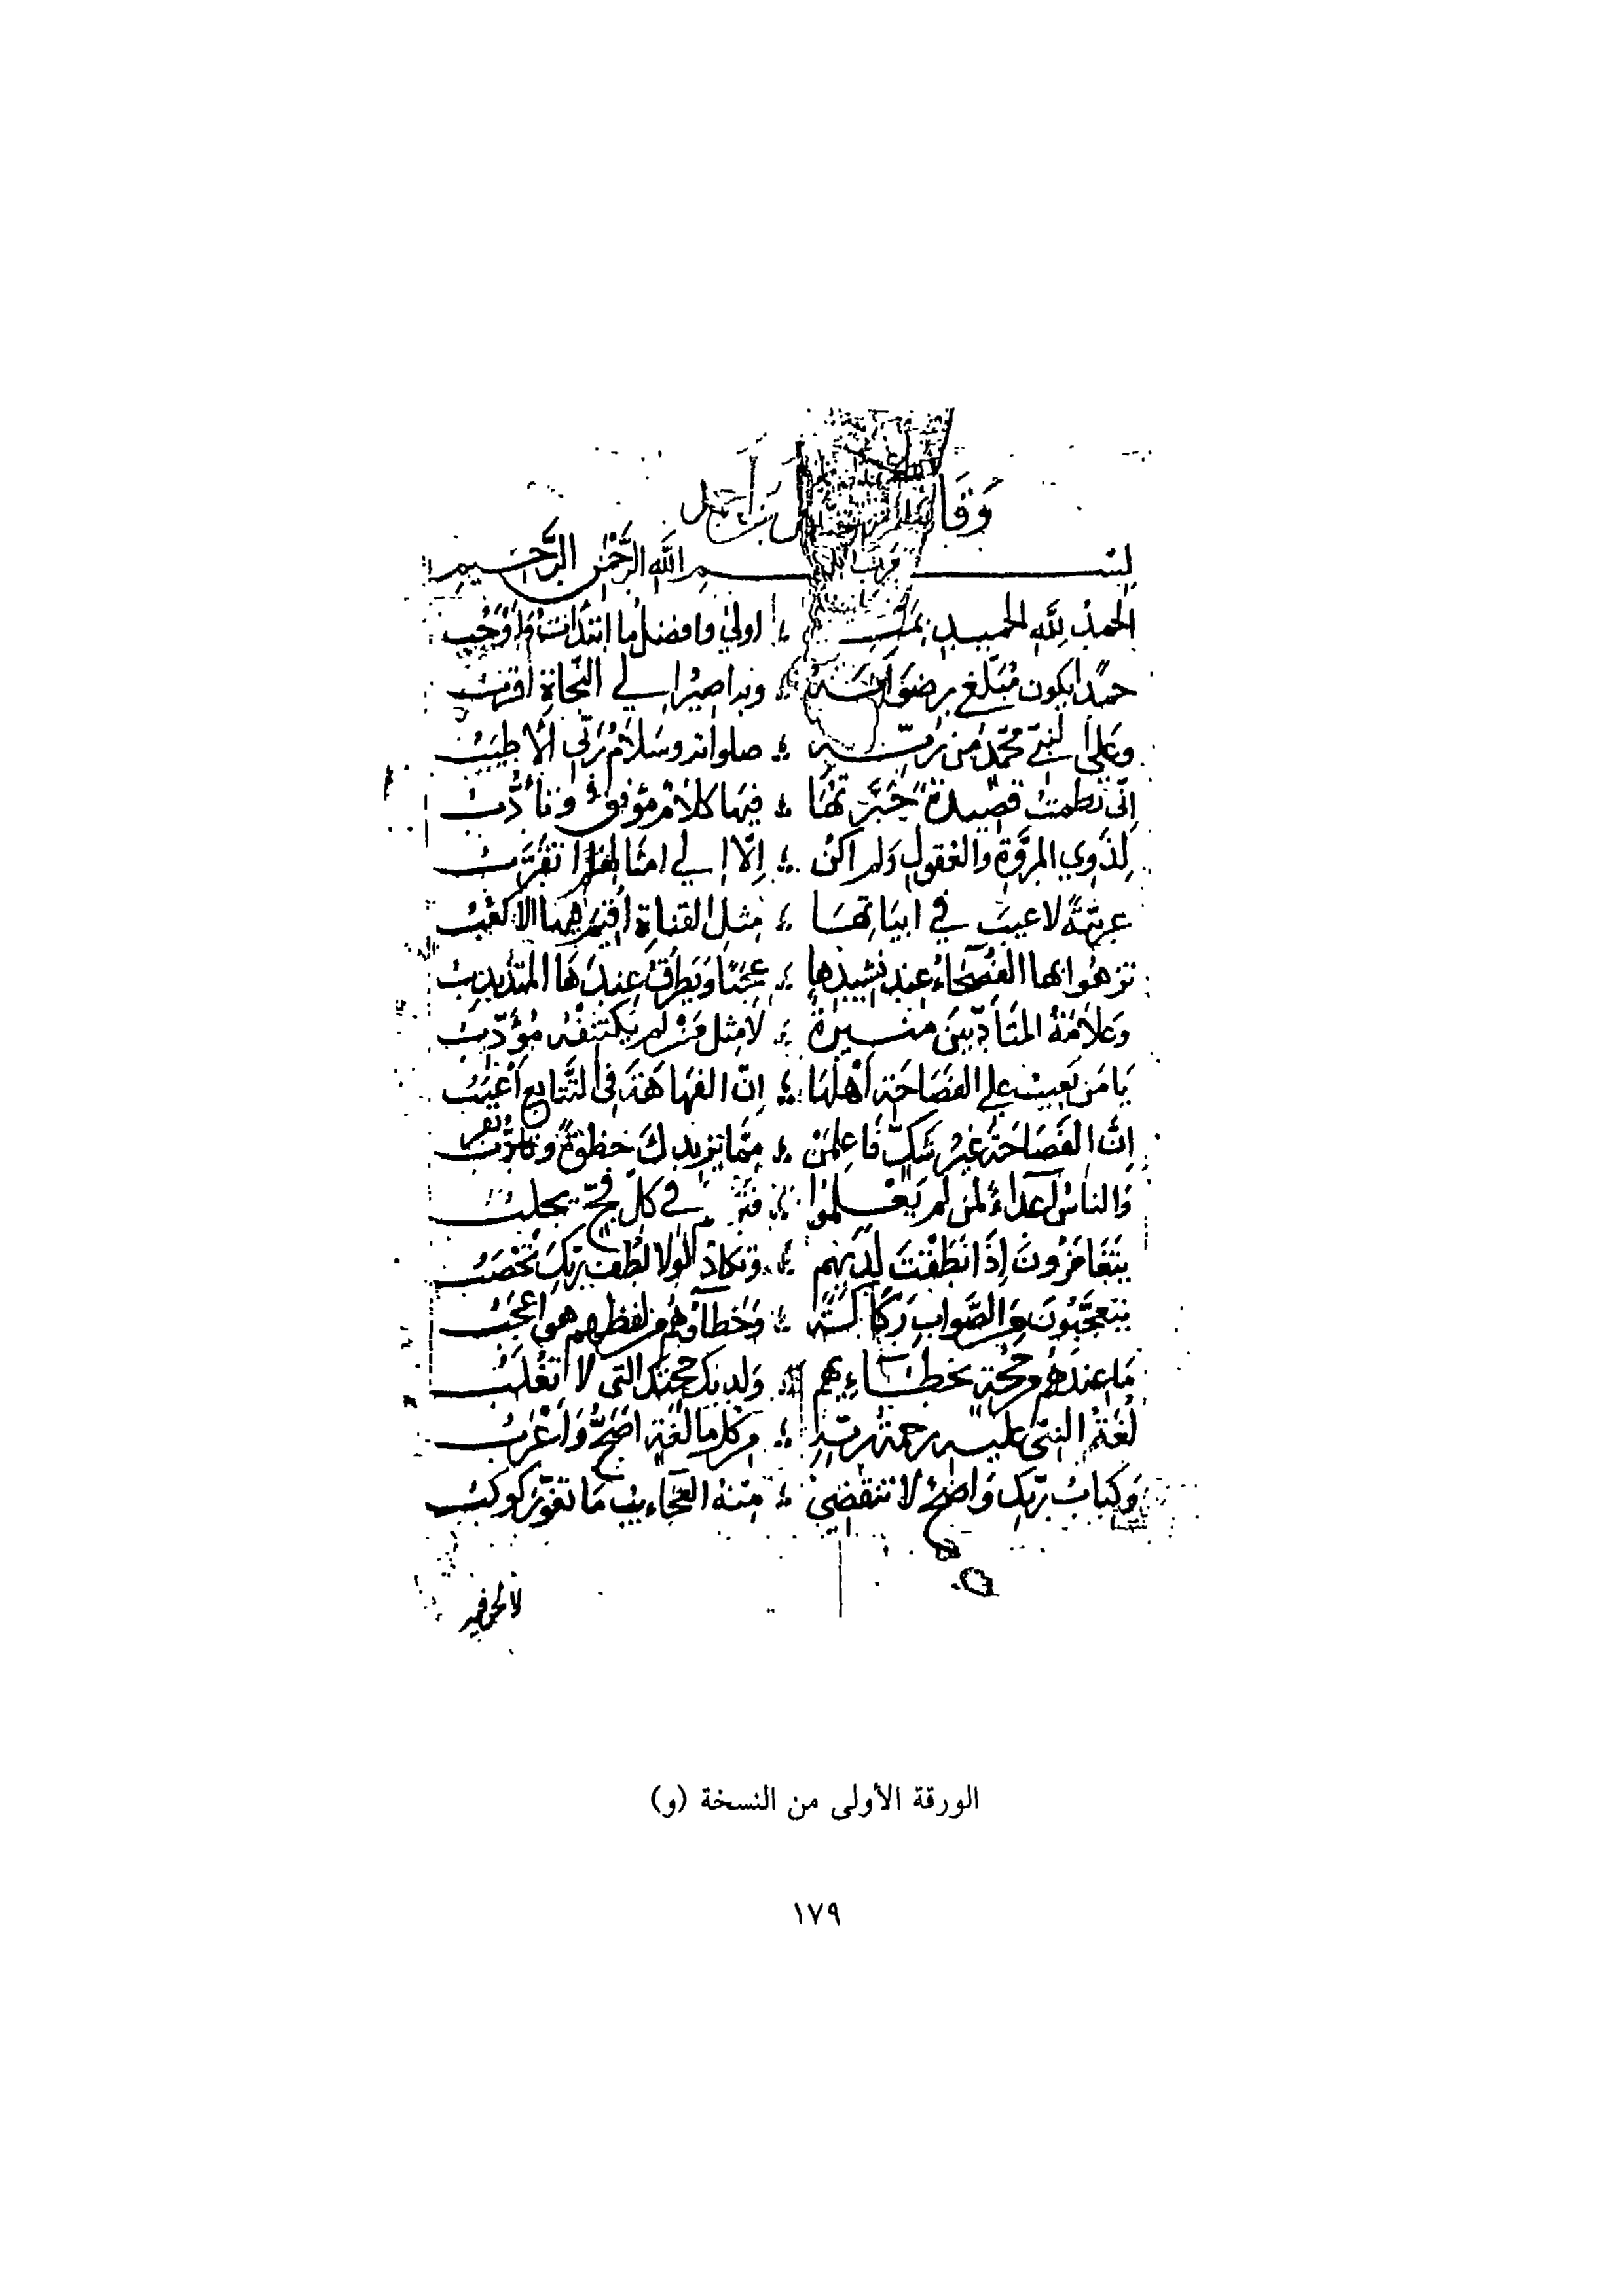 وَقَال بن احمد
بسم الله الرَّحْمٰنِ الرَّحِيمِ
الحمدُ لِلّهِ الحميدِ بمنه ؛ اولىٰ وافضل ما ابتدات وَاوْجَبُ
حمدًا يكون مُبَلّغي رضوانه ؛ وبه اصير الي النَّجاةِ اقربُ
وعلى النبيّ محمّدٍ من ربّه ؛ صلواته وسَلامُ رَبّي الأطيَبُ
انّي نظمتُ قصيدةً حَبَّرتُهَا ؛ فيها كلَامٌ مؤنقٌ وتأدُّبُ
لِذَوِي المرُوَّةِ والعقولِ ولم اكن ؛ إلّا إلي امثالهم اتقرَّبُ
عربيّةً لا عيبَ في ابياتهَا ؛ مِثل القناةِ أُقيم فيها الاكعُبُ
تزهُوا بها الفُصَحَاءُ عند نشيدها ؛ عجبًا وَيَطرقُ عِندَهَا المتأدِّبُ
وعلامَةُ المتأدّبينَ منيرةٌ ؛ لا مثل مَنْ لم يكتنفْه مُؤدّبُ
يَا مَن يَعيبُ على الفصَاحَةِ أهْلَهَا ؛ إنّ الفهَاهَةَ في التَّتابع أعْيَبُ
إنَّ الفَصَاحَةَ غيرُ شكٍّ فَاعلمَنْ ؛ مِمّا تزيدك حظوةً وتقرب
وَالناسُ أعداءٌ لمن لم يَعْلموا ؛ في كلّ فجّ يجلبُ
يتغَامَزُونَ إذَا نَطَقْتَ لديهم ؛ وتكادُ لولا لُطف ربّكَ تُحْصَبُ
يتعجَّبُونَ مِنَ الصَّوابِ رَكَاكَةً ؛ وَخطآؤهُم من لفظهم هو اعجَبُ
مَا عندَهُم حُجّة بخطاءِهم ؛ ولديك حجّتك التي لا تُغْلَبُ
لُغَةُ النبيّ عليه رحمةُ ربّهِ ؛ من كلّها لغَةٍ اصَحُّ وَأعْرَبُ
وَكتابُ ربّك وَاضحٌ لا تنقضي ؛ مِنهُ العجاءيبُ مَا تغوّرَ كوكبُ
لا لحن فيه
الورقة الأولى من النسخة (و)
١٧٩